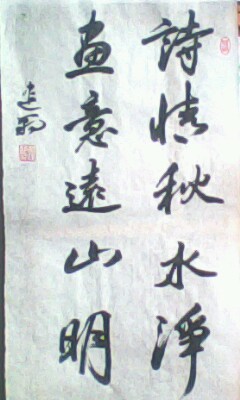 詩情秋水淨
畫意遠山明